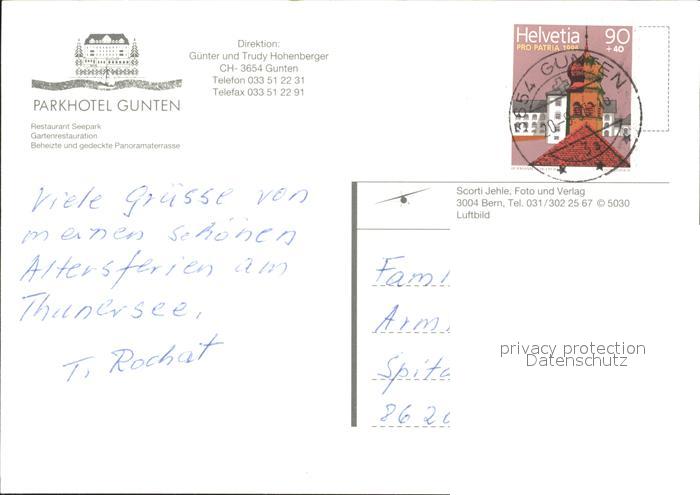 PARKHOTEL GUNTEN
Restaurant Seepark
Gartenrestauration
Beheizte und gedeckte Panoramaterrasse
Direktion:
Günter und Trudy Hohenberger
CH- 3654 Gunten
Telefon 033 51 22 31
Telefax 033 51 22 91
Helvetia 90
PRO PATRIA 1994 +40
3654 GUNTEN
Viele Grüsse von
meinen schönen
Altersferien am
Thunersee,
T. Rochat
Scorti Jehle, Foto und Verlag
3004 Bern, Tel. 031/302 25 67 © 5030
Luftbild
Fami
Armi
Spita
862
privacy protection
Datenschutz